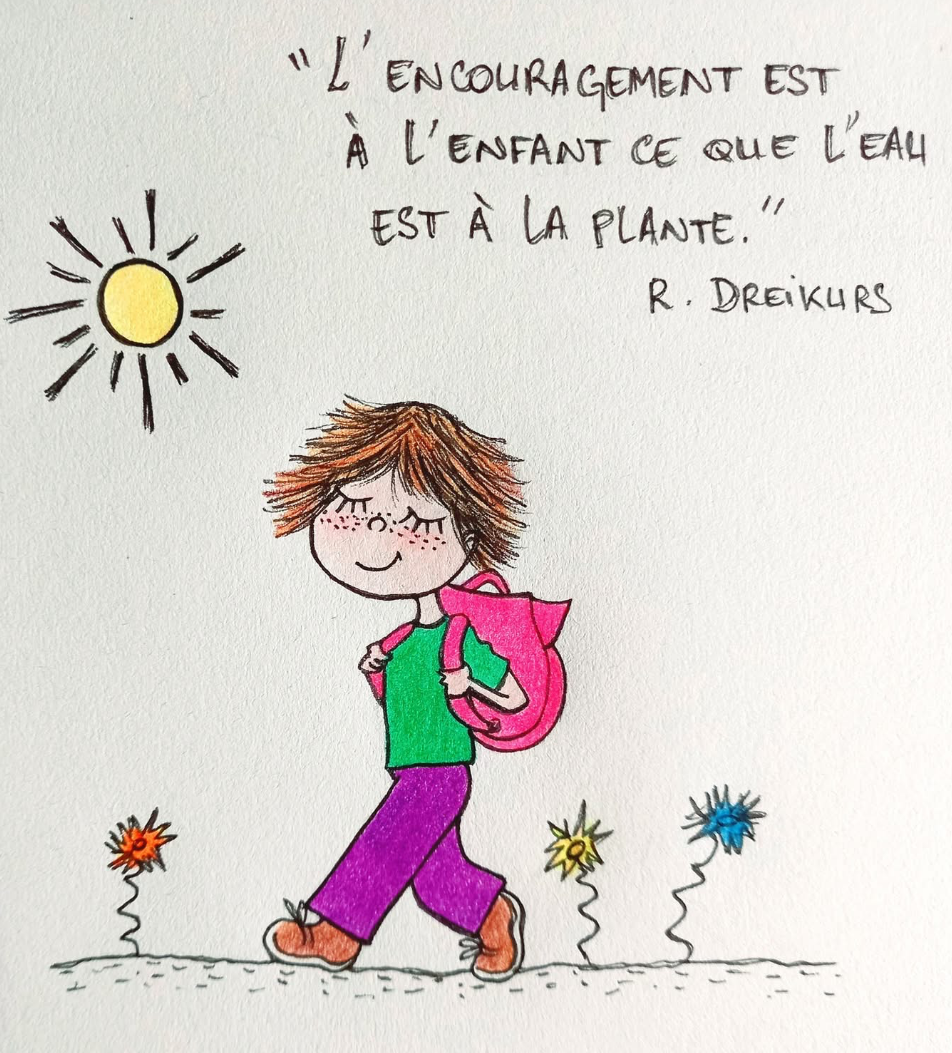 "L'ENCOURAGEMENT EST
À L'ENFANT CE QUE L'EAU
EST À LA PLANTE."
R. DREIKURS